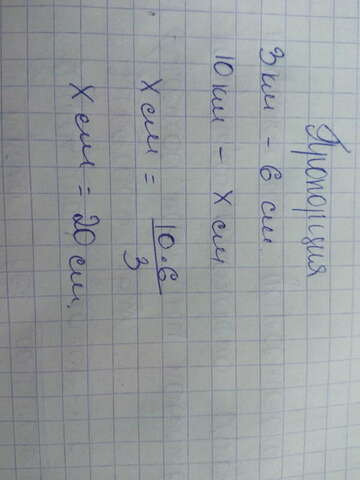 Пропорция
3 км - 6 см
10 км - х см
х см = 10·6/3
х см = 20 см.